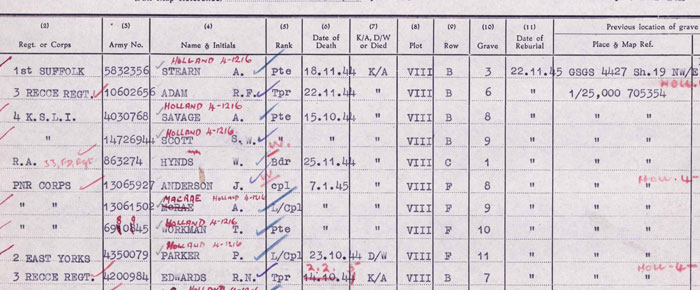 (2) (3) (4) (5) (6) (7) (8) (9) (10) (11) (12)
Previous location of grave
Regt. or Corps Army No. Name & Initials Rank Date of Death K/A, D/W or Died Plot Row Grave Date of Reburial Place & Map Ref.
HOLLAND 4-1216
1st SUFFOLK 5832356 STEARN A. Pte 18.11.44 K/A VIII B 3 22.11.45 GSGS 4427 Sh.19 NW/E
3 RECCE REGT. 10602656 ADAM R.F. Tpr 22.11.44 " VIII B 6 " 1/25,000 705354
HOLLAND 4-1216
4 K.S.L.I. 4030768 SAVAGE A. Pte 15.10.44 " VIII B 8 " "
HOLLAND 4-1216
" 14726944 SCOTT S.W. " " " VIII B 9 " "
W.
R.A. 33, Fd, Rgt. 863274 HYNDS W. Bdr 25.11.44 " VIII C 1 " "
HOLL-4-
PNR CORPS 13065927 ANDERSON J. cpl 7.1.45 " VIII F 8 " "
MACRAE HOLLAND 4-1216
" " 13061502 McRAE A. L/Cpl " " VIII F 9 " "
8 9 HOLLAND 4-1216
" " 6910845 WORKMAN T. Pte " " VIII F 10 " "
HOLLAND 4-1216
2 EAST YORKS 4350079 PARKER P. L/Cpl 23.10.44 D/W VIII F 11 " "
2. 2. 5 HOLL-4-
3 RECCE REGT. 4200984 EDWARDS R.N. Tpr 14.10.44 K/A VIII B 7 " "
HOLLAND 4-1216